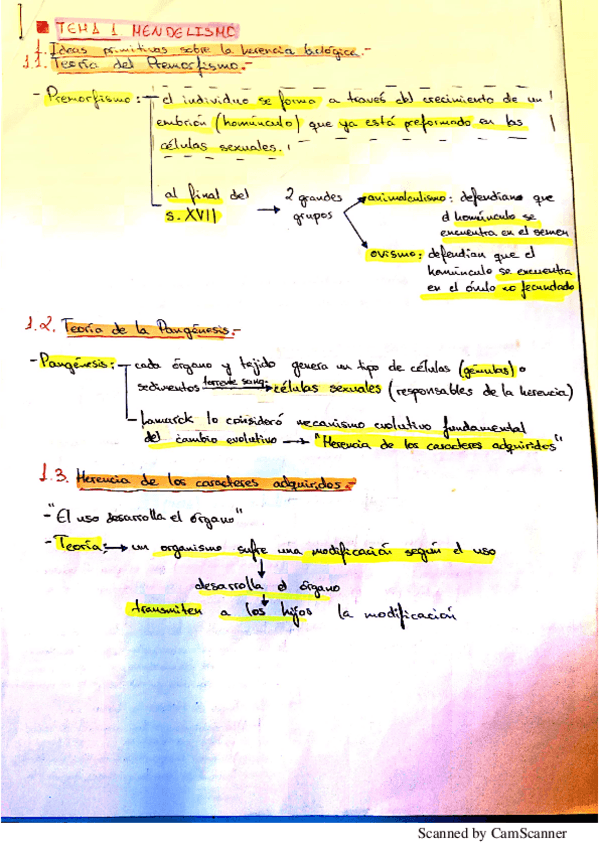 TEMA 1 MENDELISMO
1. Ideas primitivas sobre la herencia biológica.-
1.1. Teoría del Premorfismo.-
- Premorfismo: el individuo se forma a través del crecimiento de un
embrión (homúnculo) que ya está preformado en las
células sexuales.
al final del s. XVII → 2 grandes grupos
animalculismo: defendiano que
el homúnculo se
encuentra en el semen
ovismo: defendían que el
homúnculo se encuentra
en el óvulo no fecundado
1.2. Teoría de la Pangénesis.-
- Pangénesis: cada órgano y tejido genera un tipo de células (gémulas) o
sedimentos torrente sang. → células sexuales (responsables de la herencia)
Lamarck lo consideró mecanismo evolutivo fundamental
del cambio evolutivo → "Herencia de los caracteres adquiridos"
1.3. Herencia de los caracteres adquiridos.-
- "El uso desarrolla el órgano"
- Teoría: → un organismo sufre una modificación según el uso
↓
desarrolla el órgano
↓
transmiten a los hijos la modificación
Scanned by CamScanner